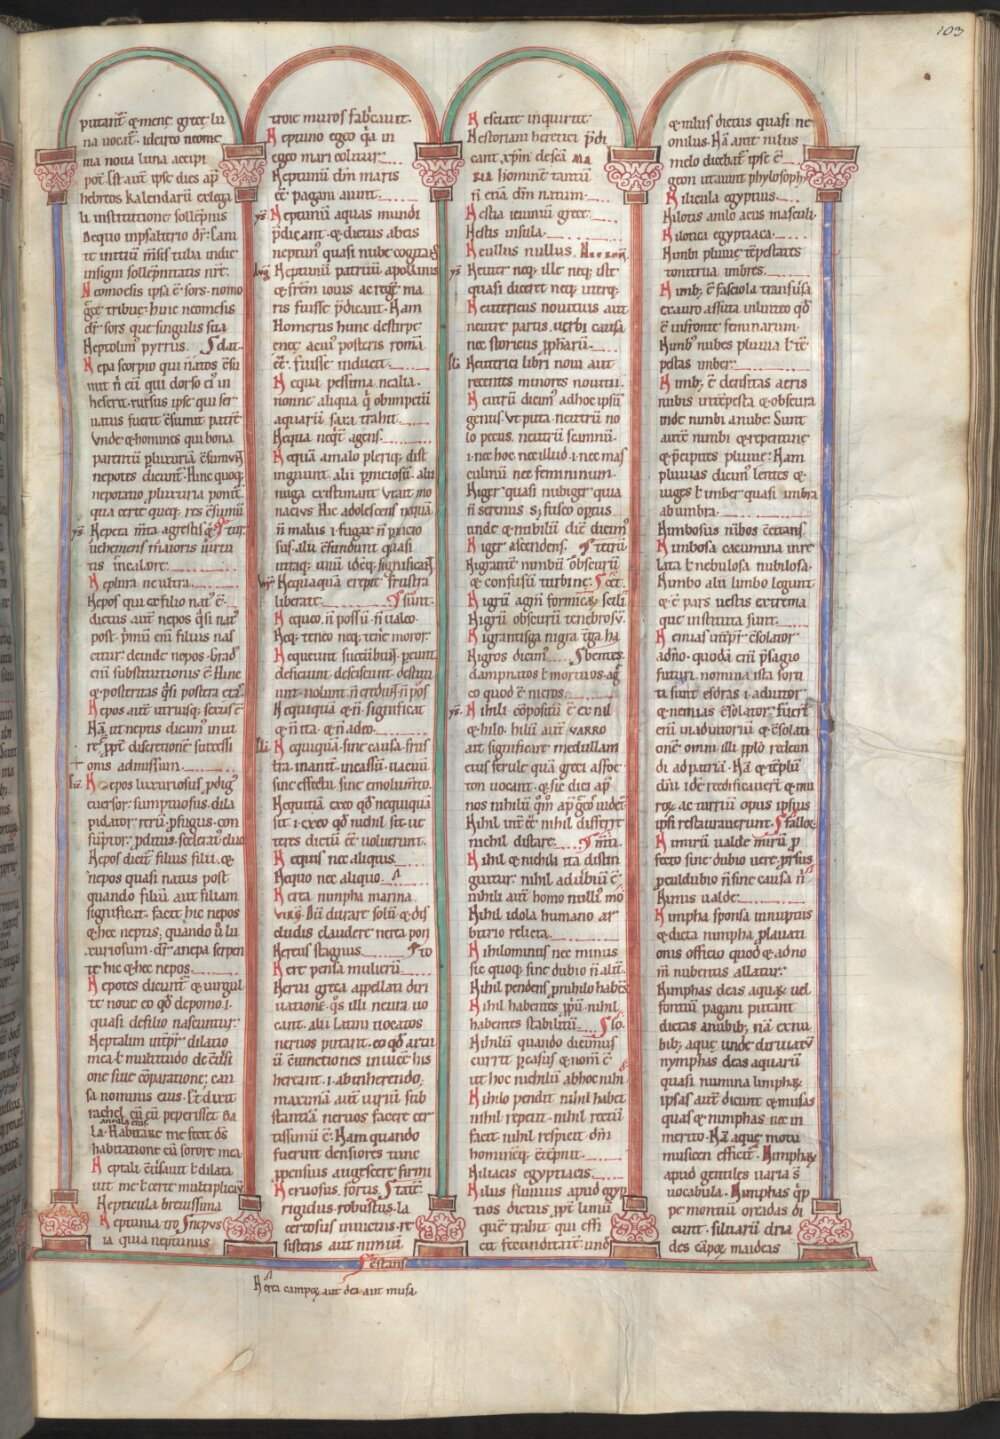 103
putant̄ & menę gręcę lu
na uocat̄. idcirco neomę
ma noua luna accipi
pot̄. Est aut̄ ipse dies ap̄
hebreos kalendarū ex lega
li institutione sollēpnis
De quo in psalterio dr̄. Cani
te initiū m̄sis tuba indie
insigni sollēpnitatis nr̄ę.
Neomoesis ipsa ē sors. nomo
gr̄ce tribue; hinc neomesius
dr̄ sors que singulis sua
Neptolim; pyrrus. dat.
Nepa scorpio qui natos ēsu
mit n̄ eū qui dorso ei; in
heserit. rursus ipse qui ser
uatus fuerit ēsumit patrē
Vnde & homines qui bona
parentū p luxuriā ēsumunt
nepotes dicunt̄. Hinc quoq;
nepotatio p luxuria ponit̄
qua certe queq; res ēsumit̄
Nepeta m̄ta agrestis q̄
uehemens m̄aioris uirtu
tis incalore.
Nephra neutra.
Nepos qui ex filio nat; ē.
dictus aut̄ nepos q̄si nat;
post. p̄mū eni filius nas
citur. deinde nepos. Grad;
eni substitutionis ē. Hinc
& posteritas q̄si postera etas.
Nepos aut̄ utriusq; sexus ē
Nā ut neptis dicam; in iu
re p̄pt̄ discretione successi
onis admissum.
Nepos luxuriosus p̄dig;
euersor. sumptuosus. dila
pidator rerū. p̄fugus. con
sūptor. p̄ditus. sceleratus
Nepos dicit̄ filius filii. &
nepos quasi natus post
quando filiū aut filiam
significat. facit hic nepos
& hec neptis; quando ů lu
xuriosum. dr̄ a nepa serpen
te hic & hec nepos.
Nepotes dicunt̄ & uirgul
tę nouę eo qd̄ de pomo .i.
quasi de filio nascuntur.
Neptalim int̄pr̄ dilatio
mea ł multitudo de ēuersi
one siue cōparatione; cau
sa nominis eius. Et dixit
rachel cū eū peperisset ba
ancilla eius
la. Habitare me fecit dn̄s
habitatione cū sorore mea
Neptali. ēuersauit ł dilata
uit me ł certe multiplicauit
Nepticula breuissima
Neptunia troia
ia quia neptunus
troie muros fabricauit.
Neptuno egeo q̄a in
egeo mari colitur.
Neptunū dm̄ maris
ēē pagani aiunt.
Neptunū aquas mundi
p̄dicant. & dictus ab eis
neptun; quasi nube
Neptunū patruū apollinis
& frēm iouis ac regē ma
ris fuisse p̄dicant. Nam
Homerus hunc de stirpe
eneę & ei; posteris romā
ēē. fuisse inducit.
Nequa pessima. ne alia.
nonne aliqua q̄ obin petū
aquarū saxa trahit.
Nequa neq̄t agens.
Nequā amalo pleriq; dist
inguunt. alii p̄niciosū. alii
nuga existimant ut ait mo
nacius. Hic adolescens nequā
n̄ malus .i. fugax n̄ p̄nicio
sus. alii ēfundunt quasi
utriq; unū ideq; significat
Nequaquā ereptę frustra
liberatę. sunt.
Nequeo. n̄ possū. n̄ ualeo.
Neq; teneo neq; tene moror.
Nequeunt succūbunt. pereunt.
deficiunt. desciscunt. destitu
unt. nolunt. n̄ credunt. n̄ pos̄
Nequiquā & n̄ significat
& n̄ ita & n̄ adeo.
Nequiquā. sine causa. frus
tra. inanit̄. incassū. uacuū
sine effectu. sine emolum̄to.
Nequitiā ex eo qd̄ nequiquā
sit .i. ex eo qd̄ nichil sit. ue
teres dictū ēē uoluerunt.
Nequis nec aliquis.
Nequo nec aliquo.
Nerta nimpha marina
Virg. Dū durare solū & dis
cludis claudere nerta pon
Nereus stagnus. to
Nere pensa mulierū
Nerui greca appellati diri
uatione. q̄s illi neura uo
cant. alii latini uocatos
neruos putant. eo qd̄ artu
ū ēiunctiones inuicē his
hereant .i. ab inherendo.
maximā aut̄ uiriū sub
stantiā neruos facere cer
tissimū ē. Nam quando
fuerint densiores tunc
p̄pensius augescere firmi
Neruosus. fortis. tatē.
rigidus. robustus. la
certosus. inuictus. re
sistens aut nimiū
Nesciens inquirit
Nestoriani heretici p̄di
cant. xp̄m de scā ma
ria hominē tantū
n̄ etiā dm̄ natum.
Nestia ieiuniū grece.
Nestis insula.
Neullus nullus.
Neuter neq; ille neq; iste
quasi diceret neq; uterq;
Neutericus nouitius aut
neutrę partis. uerbi causa
nec storicus p̄phārū.
Neuterici libri noui aut
recentes minores nouitii.
Neutrū dicim; ad hoc ipsū
genus. ut puta neutrū no
lo pecus. neutrū scamnū.
.i. nec hoc nec illud .i. nec mas
culinū nec femininum.
Niger quasi nubiger quia
n̄ serenus s; fusco op̄tus
unde & nubilū diē dicim;
Niger ascendens. tetrū
Nigrante nimbū obscurū
& confusū turbine.
Nigrū agm̄ formicarū scili
Nigrū obscurū tenebrosū.
Nigrantis ga nigra t̄ga ha
Nigros dicim; bentes.
damnatos ł mortuos.
eo quod ē nicros.
Nihili cōpositū ē ex nil
& hilo. hilū aut̄ varro
ait significare medullam
eius ferulę quā greci assoc
ton uocant. & sic dici ap̄
nos nihilū q̄m ap̄ grecos
Nihil int̄ ēē nihil differre
nichil distare.
Nihil & nichili ita distin
guitur. nihil aduerbiū ē
nihili aut̄ homo nulli; mo
Nihil idola humano ar
bitrio relicta.
Nihilominus nec minus
sic quoq; sine dubio n̄ alit̄.
Nihil pendens p̄ nihilo habēs
Nihil habentes p̄p̄ū. nihil
habentes stabilitū. lo.
Nihilū quando dicimus
currit p casus & nom̄ ē
ut hoc nichilū ab hoc nihi
Nihilo pendit nihil habet
nihil repetit. nihil reciū
facit nihil respicit dm̄
hominēq; ētēpnit.
Niliacis egyptiacis.
Nilus fluuius apud egyp
tios dictus p̄pt̄ limū
quē trahit qui effi
cit fecunditatē. unde
& nilus dictus quasi ne
onilus. Nā ante nilus
melo dicebat̄. ipse ē
geon ut aiunt phylosophi
Nilicola egyptius.
Nilotis anilo acus masculi
Nilotica egyptiaca.
Nimbi pluuię tēpestates
tonitrua imbres.
Nimb; ē fasciola transūsa
ex auro. assuta in linteo qd̄
ē in fronte feminarum.
Nimb; nubes pluuia ł tē
pestas imber.
Nimb; ē densitas aeris
nubis intēpesta & obscura
inde nimbi a nube. Sunt
aute nimbi & repentinę
& p̄cipites pluuię. Nam
pluuias dicim; lentes &
iuges ł imber quasi umbra
ab umbra.
Nimbosus nībos ēcitans.
Nimbosa cacumina in re
lata ł nebulosa. nubilosa.
Nimbo alii limbo legunt
& ē pars uestis extrema
que instituta sunt.
Nemias int̄pr̄ ēsolator
a dn̄o. quodā eni p̄sagio
futuri nomina ista sorti
ti sunt esdras .i. adiutor
& nemias ēsolator. fuert̄
eni in adiutoriū & ēsolati
onē omni illi pp̄lo redeun
di ad patriā. Nā & tēplū
dn̄i idē reedificauert̄ & mu
rorū ac turriū opus ipsius
ipsi restaurauerunt. fallor
Nimirū ualde mirū p
fecto sine dubio uere p̄rsus
p̄culdubio n̄ sine causa n̄
Nimis ualde.
Nimpha sponsa in nuptus
& dicta nimpha p̄ lauati
onis officio quod & ad no
m̄ nubentis allatur.
Nimphas deas aquarū uel
fontiū pagani putant
dictas anubib; nā ex nu
bib; aquę unde diriuatū
nymphas deas aquarū
quasi numina limpharū
ipsas aut̄ dicunt & musas
quas & nimphas nec in
merito. Nā aquę motu
musicen efficit. Nimpharū
apud gentiles uaria s̄
uocabula. Nimphas q̄ppe
pe montiū oreadas di
cunt. siluarū dria
des cāporū maideas
sestians
Nerta camporū aut dea aut musa.